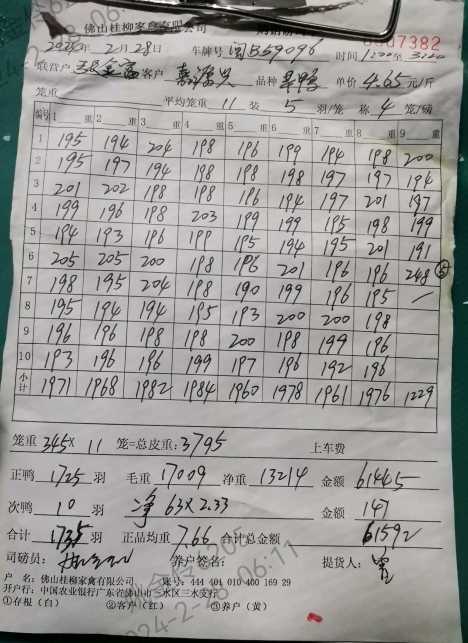 佛山桂柳家禽有限公司
7382
2024年 2月 28日 车牌号 闽B59096 时间
联营户 客户 品种 旱鸭 单价 4.65 元/斤
笼重 平均笼重 11 装 5 羽/笼 称 4 笼/磅
编号 1 重 2 重 3 重 4 重 5 重 6 重 7 重 8 重 9 重
1 195 194 204 198 196 199 194 198 200
2 195 197 194 198 198 198 197 197 194
3 201 202 198 198 196 194 197 201 197
4 199 196 198 203 199 199 195 198 199
5 194 193 196 199 195 194 195 201 191
6 205 205 200 198 196 201 196 196 248
7 198 195 204 198 190 199 196 195 —
8 195 194 194 195 193 200 200 198
9 196 196 198 198 200 198 199 196
10 193 196 196 199 197 196 192 196
小计 1971 1968 1982 1984 1960 1978 1961 1976 1229
笼重 345× 11 笼=总皮重: 3795 上车费
正鸭 1725 羽 毛重 17009 净重 13214 金额 61445
次鸭 10 羽 净 63×2.33 金额 147
合计 1735 羽 正品均重 7.66 合计总金额 61592
司磅员: 养户签名: 提货人:
户 名: 佛山桂柳家禽有限公司 账号: 444 401 010 400 169 29
开户行: 中国农业银行广东省佛山市三水区三水支行
①存根(白) ②客户(红) ③养户(黄)